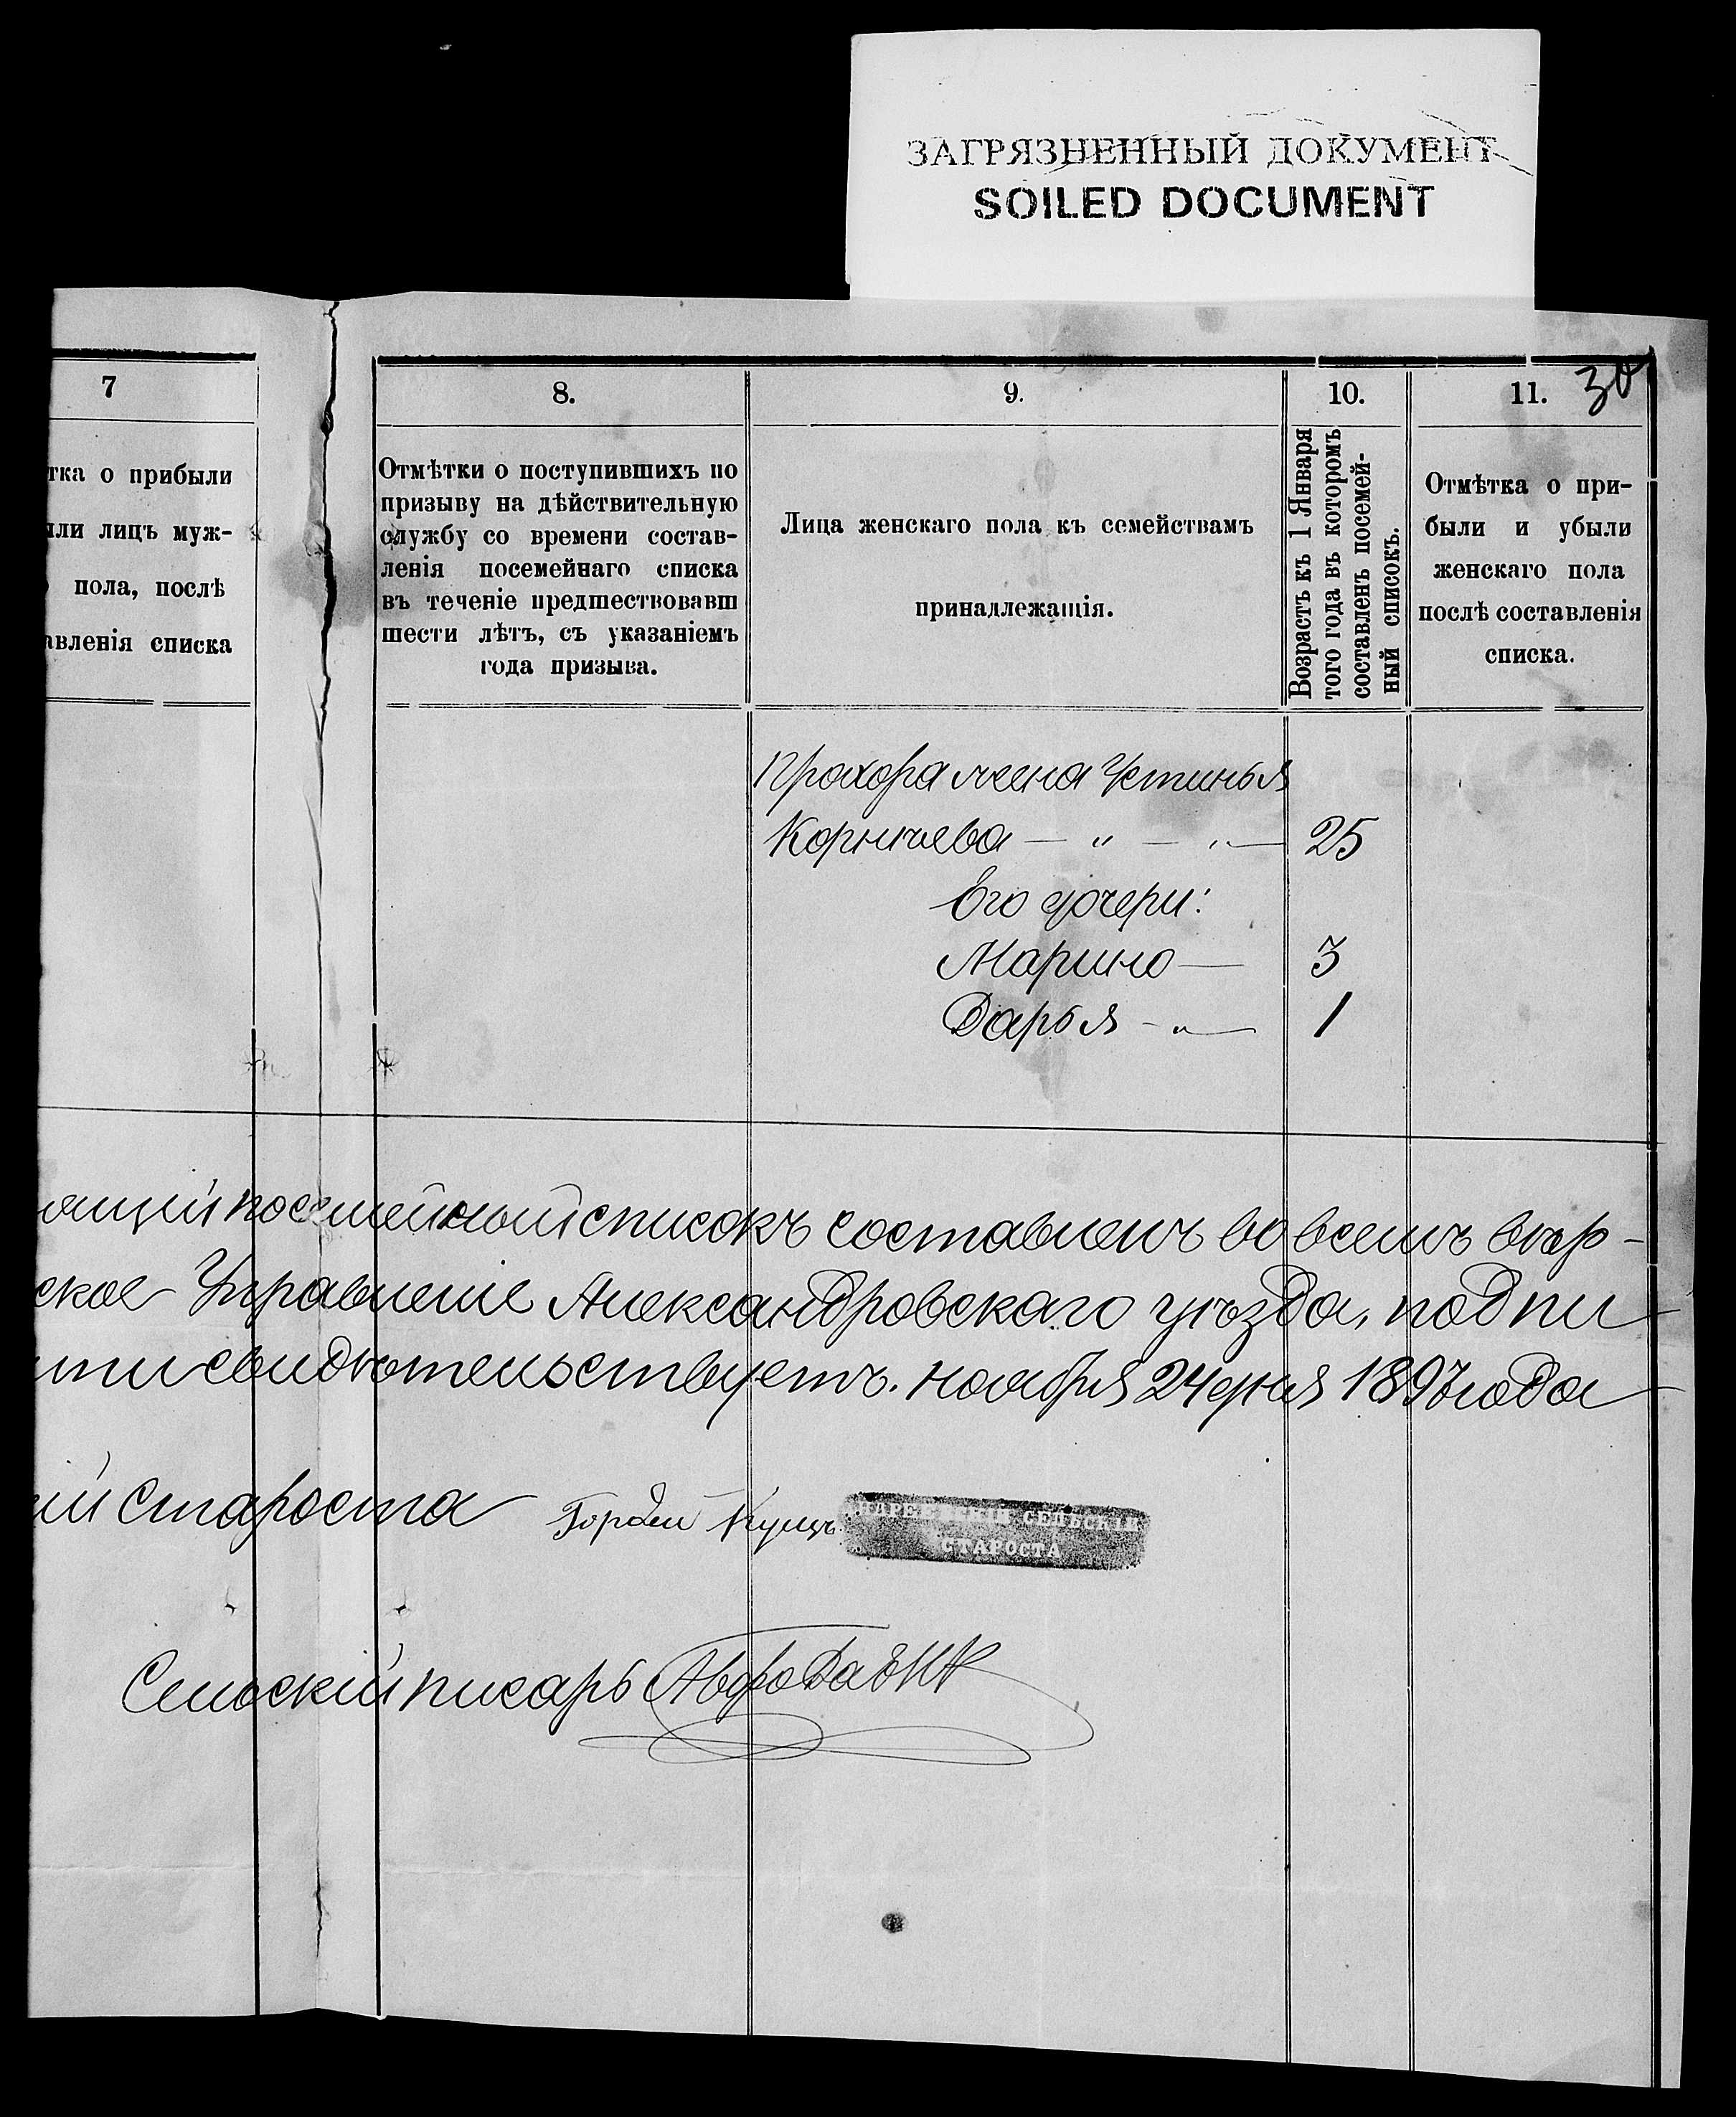 ЗАГРЯЗНЕННЫЙ ДОКУМЕНТ
SOILED DOCUMENT
30
7
тка о прибыли
ыли лицъ муж-
о пола, послѣ
авленія списка
8.
Отмѣтки о поступившихъ по
призыву на дѣйствительную
службу со времени состав-
ленія посемейнаго списка
въ теченіе предшествовавш
шести лѣтъ, съ указаніемъ
года призыва.
9.
Лица женскаго пола къ семействамъ
принадлежащія.
10.
Возрастъ къ 1 Января
того года въ которомъ
составленъ посемей-
ный списокъ.
11.
Отмѣтка о при-
были и убыли
женскаго пола
послѣ составленія
списка.
Прохора жена Устинья
Корничева — " — " — 25
Его дочери:
Марина — 3
Дарья - " — 1
ящий посемейный списокъ составленъ во всемъ вѣр-
ское Управленіе Александровскаго уѣзда, подпи
ти свидѣтельствуетъ. ноября 24 дня 1897 года
ій Староста Гордей Куцъ
АНДРЕЕВСКІЙ СЕЛЬСКІЙ
СТАРОСТА
Сельскій писарь